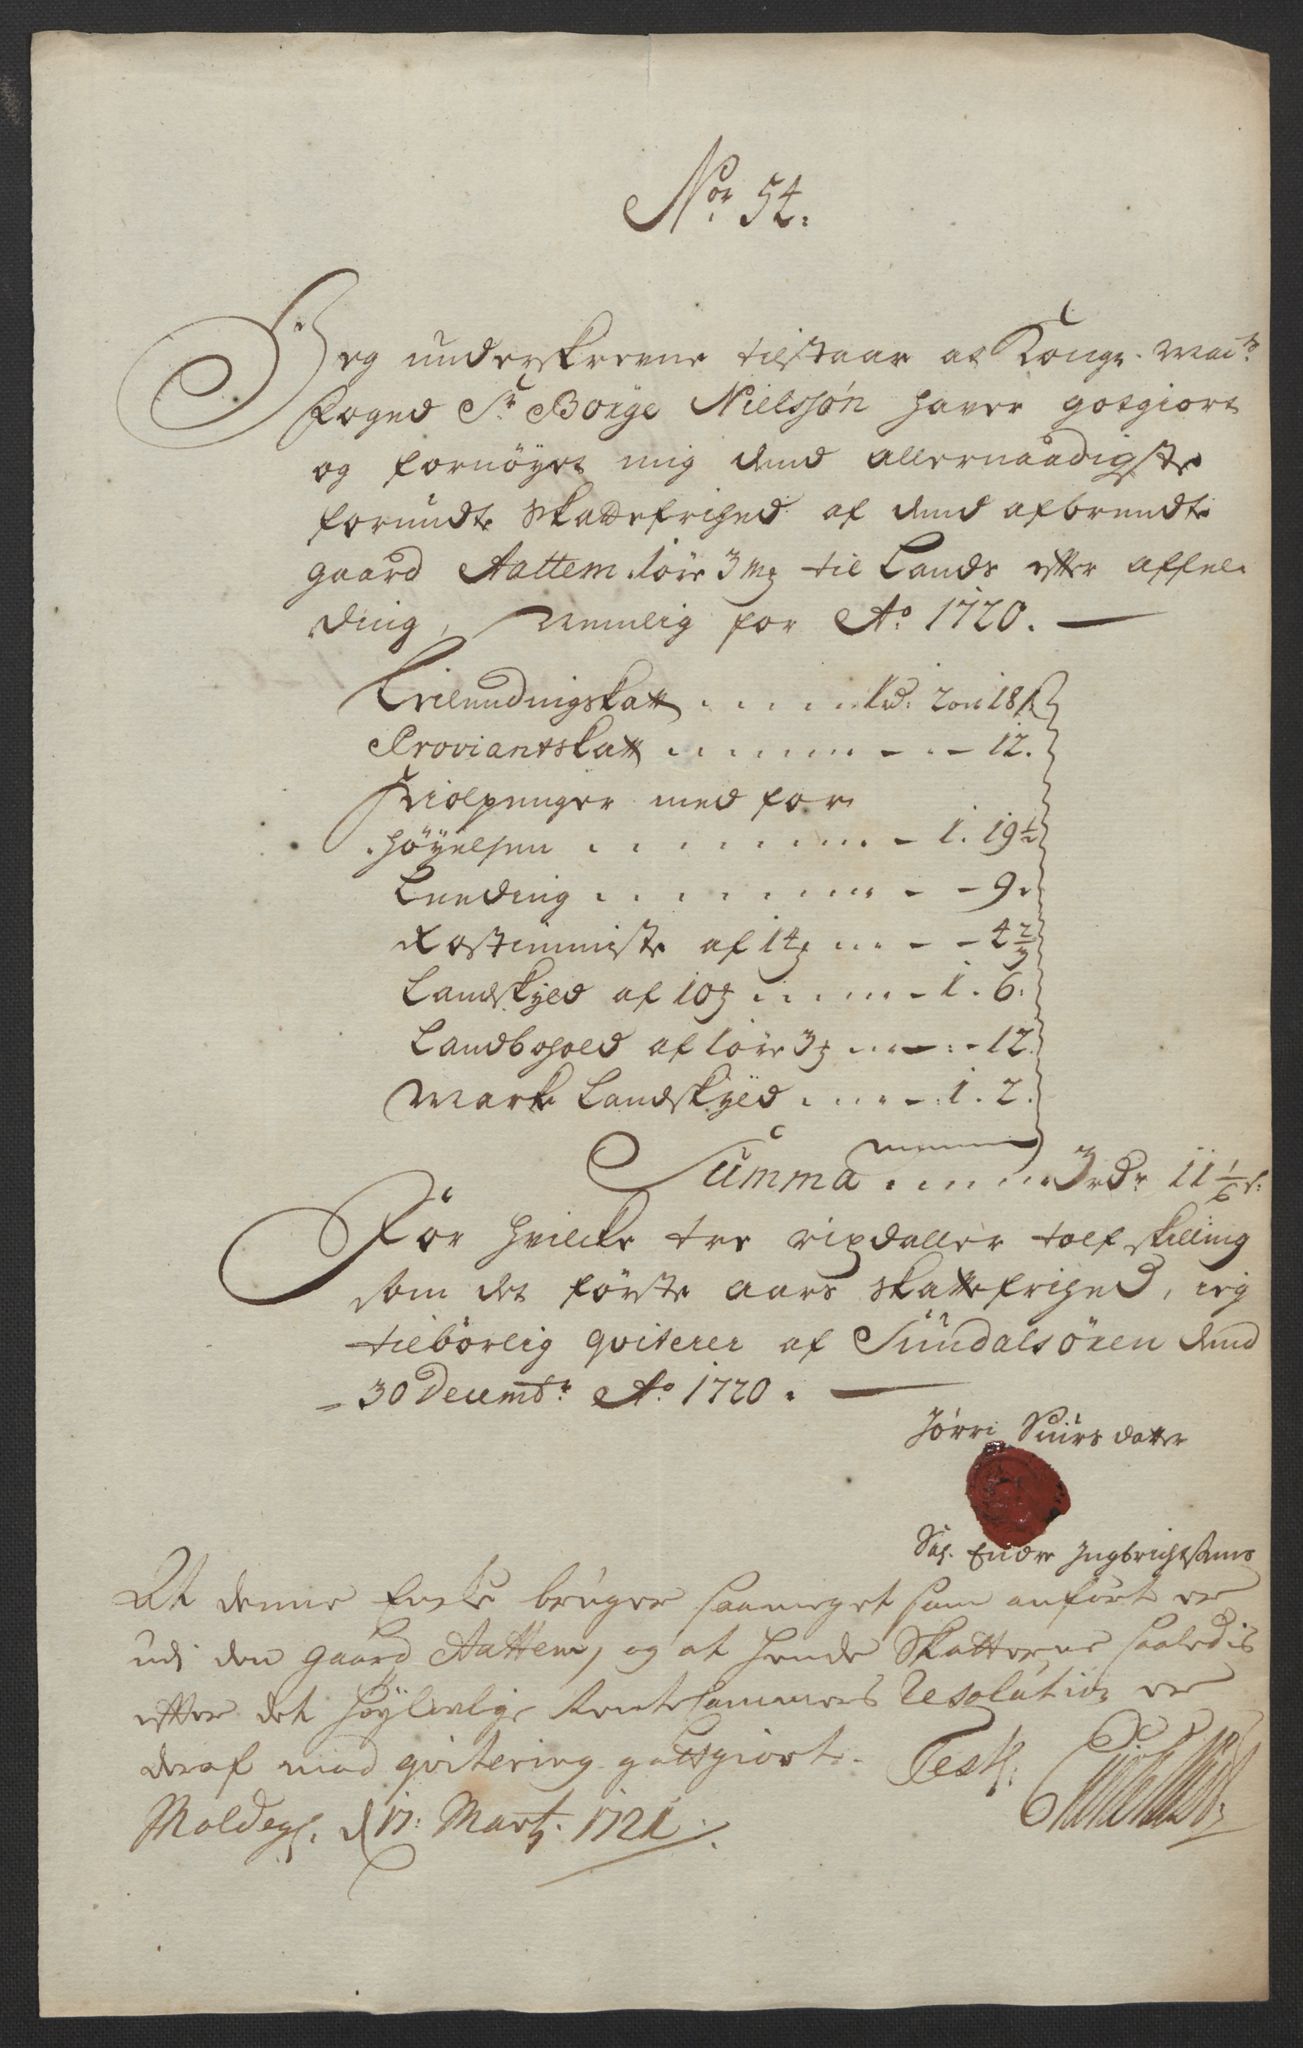 Nor 54.
Jeg underskrevne tilstaar at Kongl. May.ts
Foged Sr Børge Nielssøn haver gotgiort
og fornøyet mig dend allernaadigste
forundte Skattefrihed af dend afbrendte
gaard Aattem 1øre 3 mg til Lands efter affel-
ding, Nemlig for Ao 1720.
Leilendingskatt . . . . . 1 rd. 2 ort 18 s
Proviantskatt . . . . . . - - - 12.
Fridlpenger med for
høyelsen . . . . . . . . - 1. 19½
Leeding . . . . . . . . - - 9.
Rostieneste af 14 . . . . - - 4⅔
Landskyld af 10 . . . . . - 1. 6.
Landbohold af 1øre 3 . . . - 12.
Mark Landskyld . . . . - 1. 2.
Summa . . . . . . 3 rdr 11⅙ s:
For hvilcke tre rixdaller tolf skilling
som det første aars skattefrihed, ieg
tilbørlig qviterer af Sundalsøren dend
30 Decembr Ao 1720.
Jørri Siursdatter
Sal. Endre Ingbrichtsøns
At denne Encke bruger saameget som anført er
udi den gaard Aattem, og at hende Skatterne saaledis
efter det høylovlige Rentekammers Resolution er
deraf mod qvitering gotgiort. Test:
Moldegd. d 17: Marty 1721.